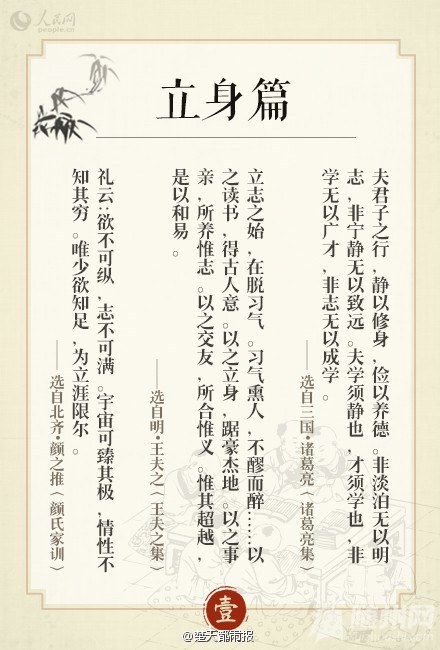 人民网
people.cn
立身篇
夫君子之行，静以修身，俭以养德。非淡泊无以明
志，非宁静无以致远。夫学须静也，才须学也，非
学无以广才，非志无以成学。
——选自三国·诸葛亮（诸葛亮集）
立志之始，在脱习气。习气熏人，不醪而醉……以
之读书，得古人意。以之立身，踞豪杰地。以之事
亲，所养惟志。以之交友，所合惟义。惟其超越，
是以和易。
——选自明·王夫之（王夫之集）
礼云：欲不可纵，志不可满。宇宙可臻其极，情性不
知其穷。唯少欲知足，为立涯限尔。
——选自北齐·颜之推（颜氏家训）
壹
@楚天都市报